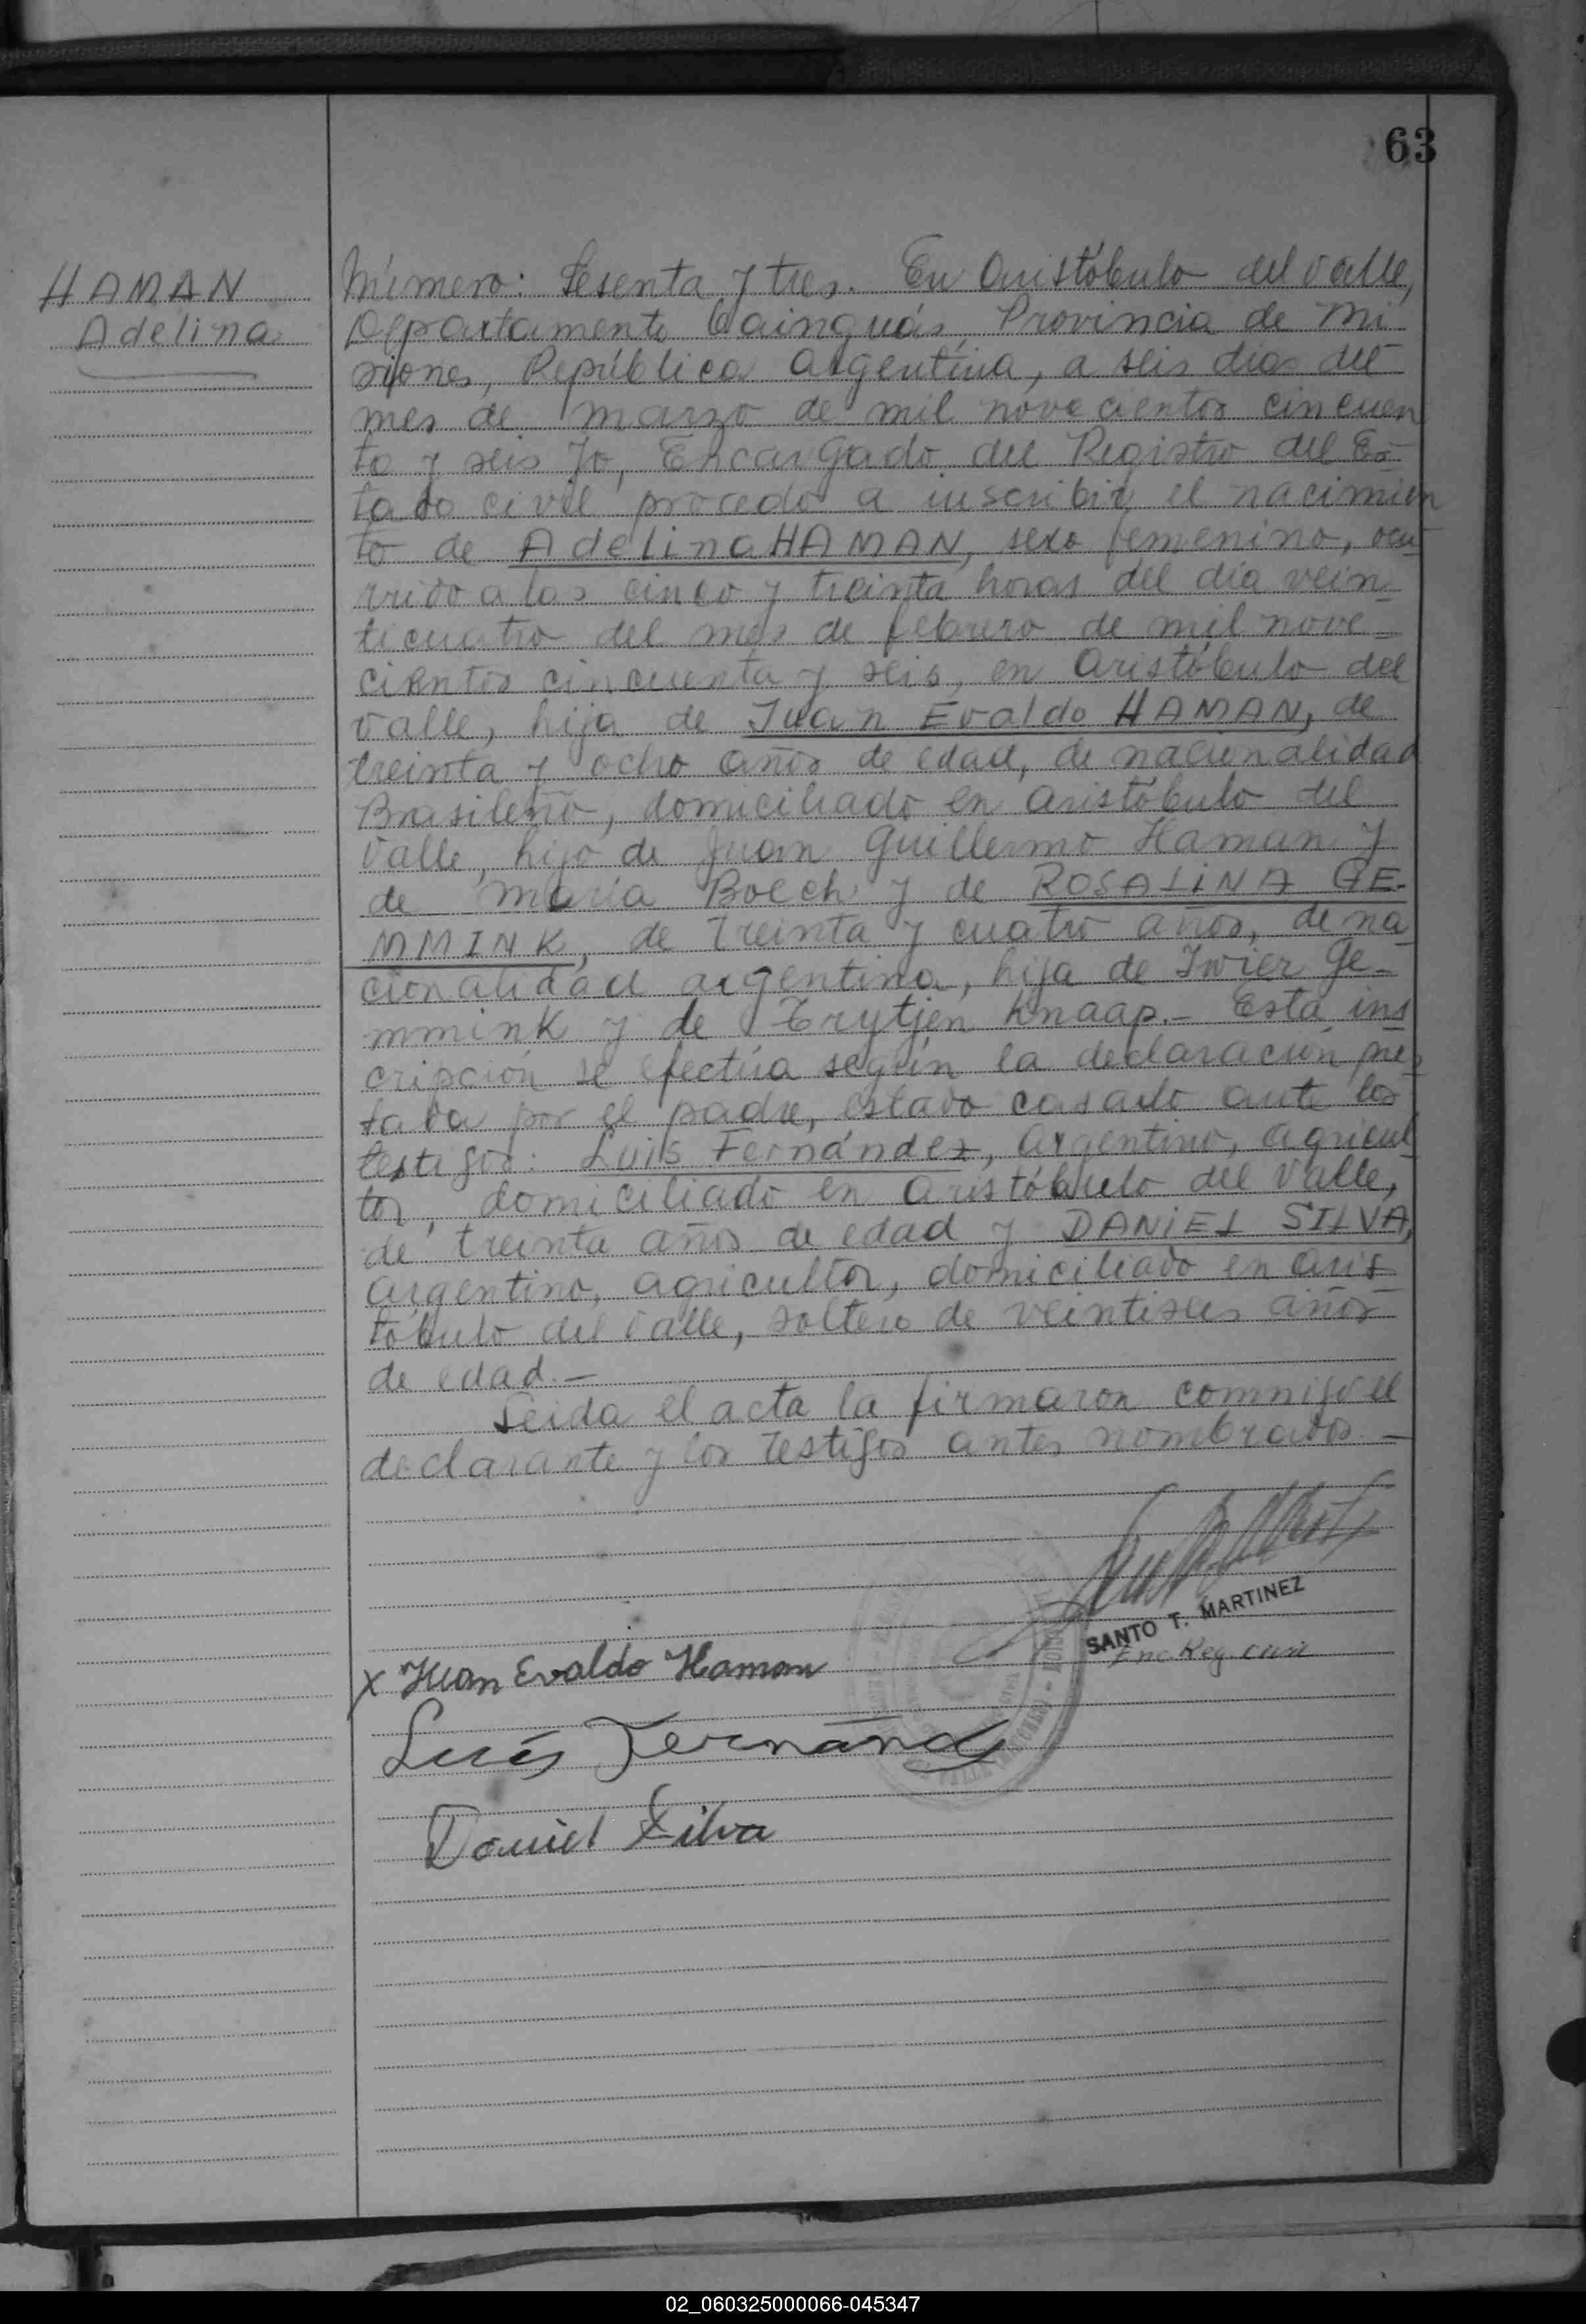 63
HAMAN
Adelina
Número: Sesenta y tres. En Aristóbulo del Valle,
Departamento Cainguás, Provincia de Mi
siones, República Argentina, a seis dias del
mes de marzo de mil novecientos cincuen
ta y seis Yo, Encargado del Registro del Es-
tado civil procedo a inscribir el nacimien
to de Adelina HAMAN, sexo femenino, ocu
rrido a las cinco y treinta horas del dia vein-
ticuatro del mes de febrero de mil nove-
cientos cincuenta y seis, en Aristóbulo del
Valle, hija de Juan Evaldo HAMAN, de
treinta y ocho años de edad, de nacionalidad
Brasileño, domiciliado en Aristóbulo del
Valle, hijo de Juan Guillermo Haman y
de María Boech y de ROSALINA GE-
MMINK, de treinta y cuatro años, de na
cionalidad argentina, hija de Iwier Ge-
mmink y de Trytjen Knaap.- Esta ins
cripción se efectúa según la declaración pres
tada por el padre, estado casado ante los
testigos: Luis Fernández, argentino, agricul
tor, domiciliado en Aristóbulo del Valle,
de treinta años de edad y DANIEL SILVA,
argentino, agricultor, domiciliado en Aris-
tóbulo del Valle, soltero de veintiseis años
de edad.-
Leida el acta la firmaron conmigo el
declarante y los testigos antes nombrados.-
SANTO T. MARTINEZ
Enc Reg. Civil
x Juan Evaldo Haman
Luis Fernández
Daniel Silva
02_060325000066-045347